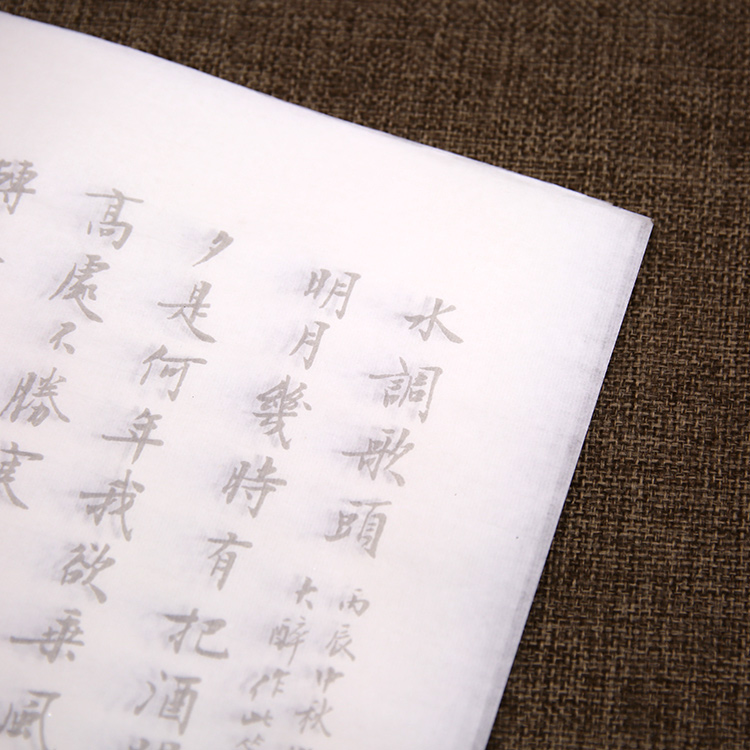 水調歌頭
丙辰中秋
大醉作此
明月幾時有把酒
夕是何年我欲乗風
高處不勝寒
轉